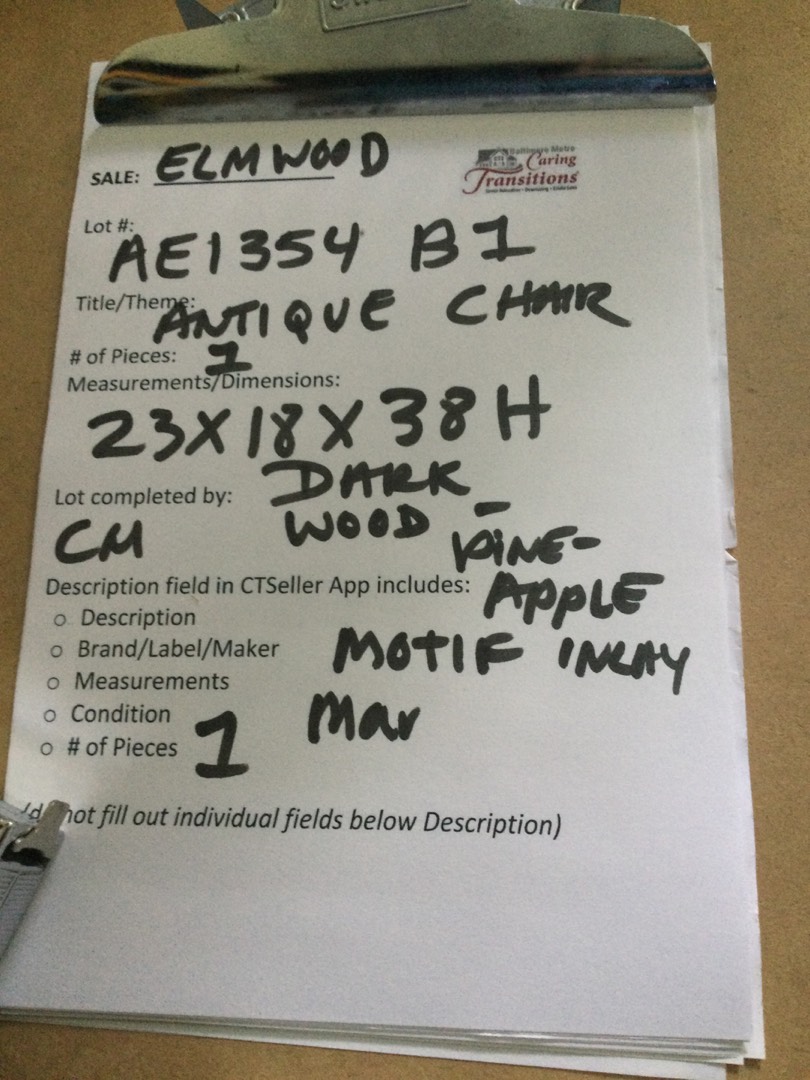 SALE: ELMWOOD
Baltimore Metro
Caring
Transitions
Lot #:
AE1354 B1
Title/Theme:
ANTIQUE CHAIR
# of Pieces: 1
Measurements/Dimensions:
23X18X38H
Lot completed by: DARK
CM WOOD -
PINE-
Description field in CTSeller App includes: APPLE
○ Description
○ Brand/Label/Maker MOTIF INLAY
○ Measurements
○ Condition Mar
○ # of Pieces 1
not fill out individual fields below Description)